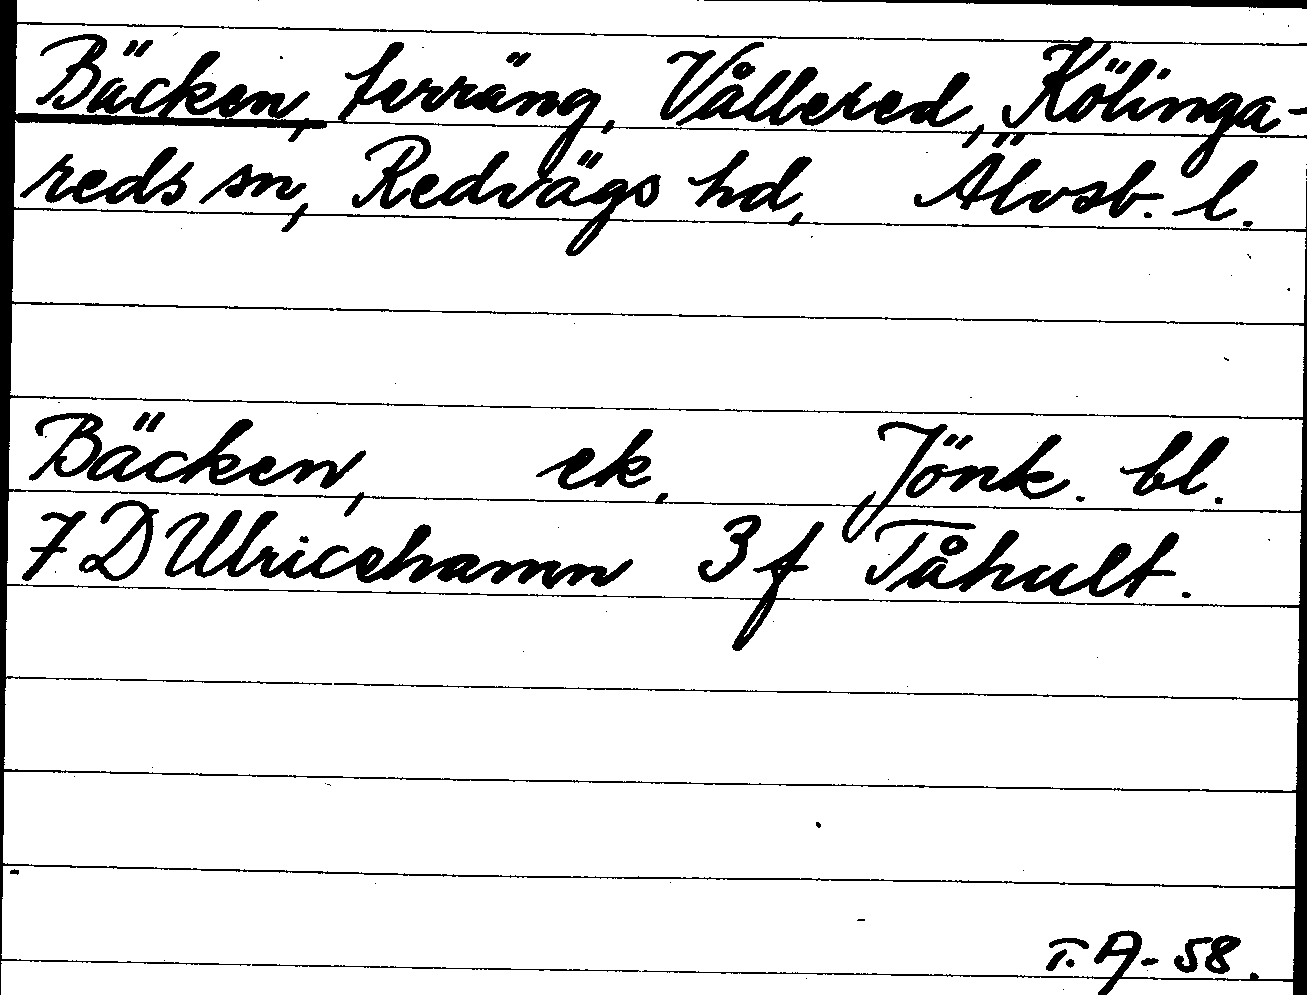 Bäcken, terräng, Vållered, Kölinga-
reds sn, Redvägs hd, Älvsb. l.
Bäcken, ek. Jönk. bl.
7 D Ulricehamn 3 f Tåhult.
T. A- 58.